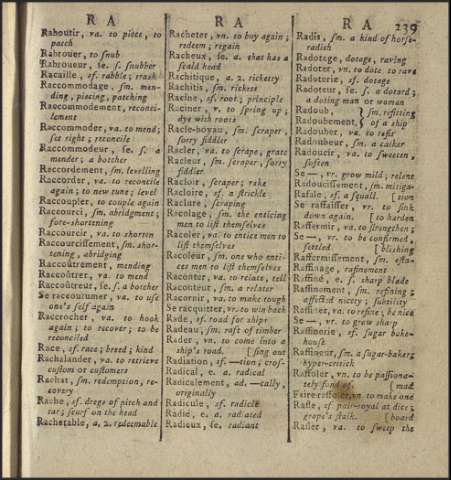 R A
R A
R A
239
Raboutir, va. to piece, to
patch
Rabrouer, to snub
Rabroueur, ſe. ſ. ſnubber
Racaille, ſf. rabble; traſh
Raccommodage, ſm. men-
ding, piecing, patching
Raccommodement, reconci-
lement
Raccommoder, va. to mend;
ſet right; reconcile
Raccommodeur, ſe. ſ. a
mender; a botcher
Raccordement, ſm. levelling
Raccorder, va. to reconcile
again; to new tune; level
Raccoupler, to couple again
Raccourci, ſm. abridgment;
fore-ſhortening
Raccourcir, va. to ſhorten
Raccourciſſement, ſm. ſhor-
tening, abridging
Raccoutrement, mending
Raccoûtrer, va. to mend
Raccoûtreur, ſe. ſ. a botcher
Se raccoutumer, va. to uſe
one's ſelf again
Raccrocher, va. to hook
again; to recover; to be
reconciled
Race, ſf. race; breed; kind
Rachalander, va. to retrieve
cuſtom or cuſtomers
Rachat, ſm. redemption, re-
covery
Rache, ſf. dregs of pitch and
tar; ſcurf on the head
Rachetable, a. 2. redeemable
Racheter, vn. to buy again;
redeem; regain
Racheux, ſe. a. that has a
ſcald head
Rachitique, a. 2. ricketty
Rachitis, ſm. rickets
Racine, ſf. root; principle
Raciner, v. to ſpring up;
dye with roots
Racle-boyau, ſm. ſcraper,
ſorry fiddler
Racler, va. to ſcrape, grate
Racleur, ſm. ſcraper, ſorry
fiddler
Racloir, ſcraper; rake
Racloire, ſf. a ſtrickle
Raclure, ſcraping
Racolage, ſm. the enticing
men to liſt themſelves
Racoler, va. to entice men to
liſt themſelves
Racoleur, ſm. one who enti-
ces men to liſt themſelves
Raconter, va. to relate, tell
Raconteur, ſm. a relater
Racornir, va. to make tough
Se racquitter, vr. to win back
Rade, ſf. road for ſhips
Radeau, ſm. raft of timber
Rader, vn. to come into a
ſhip's road. [ſing out
Radiation, ſf. —tion; croſ-
Radical, e. a. radical
Radicalement, ad. —cally,
originally
Radicule, ſf. radicle
Radié, e. a. radiated
Radieux, ſe. radiant
Radis, ſm. a kind of horſe-
radiſh
Radotage, dotage, raving
Radoter, vn. to dote to rave
Radoterie, ſf. dotage
Radoteur, ſe. ſ. a dotard;
a doting man or woman
Radoub, } ſm. refitting
Radoubement, } of a ſhip
Radouber, va. to refit
Radoubeur, ſm. a calker
Radoucir, va. to ſweeten,
ſoften
Se —, vr. grow mild; relent
Radouciſſement, ſm. mitiga-
Rafale, ſf. a ſquall. [tion
Se raffaiſſer, vr. to ſink
down again. [to harden
Raffermir, va. to ſtrengthen;
Se —, vr. to be confirmed,
ſettled. [bliſhing
Raffermiſſement, ſm. eſta-
Raffinage, refinement
Raffiné, e. ſ. ſharp blade
Raffinement, ſm. refining;
affected nicety; ſubtility
Raffiner, va. to refine, be nice
Se —, vr. to grow ſharp
Raffinerie, ſf. ſugar bake-
houſe
Raffineur, ſm. a ſugar-baker;
hyper-critick
Raffoler, vn. to be paſſiona-
tely fond of. [mad
Faire raffoler, vn. to make one
Rafle, ſf. pair-royal at dice;
grape's ſtalk. [board
Rafler, va. to ſweep the